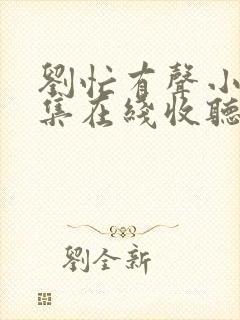 劉忙有聲小
集在綫收聽
劉全新